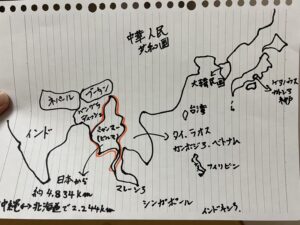 中華人民
共和国
大韓民国
ネパール
ブータン
台湾
バングラ
デッシュ
ミャンマー
(ビルマ)
インド
タイ、ラオス
カンボジア、ベトナム
フィリピン
日本から
約4.834km
沖縄↔北海道で2.244km
マレーシア
シンガポール
インドネシア